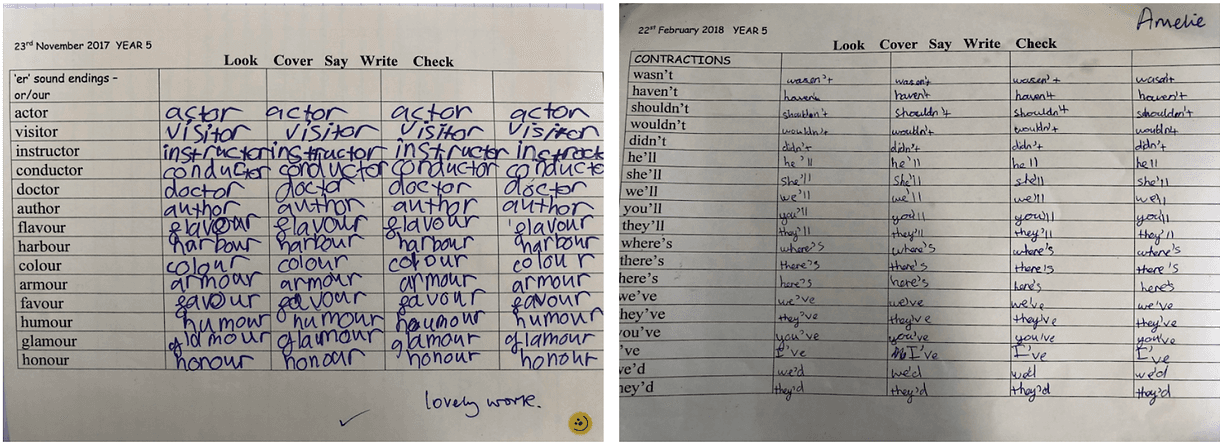 23rd November 2017 YEAR 5
Look Cover Say Write Check
'er' sound endings –
or/our
actor actor actor actor actor
visitor visitor visitor visitor visitor
instructor instructor instructor instructor instructo
conductor conductor conductor conductor conducto
doctor doctor doctor doctor doctor
author author author author author
flavour flavour flavour flavour flavour
harbour harbour harbour harbour harbour
colour colour colour colour colour
armour armour armour armour armour
favour favour favour favour favour
humour humour humour humour humour
glamour glamour glamour glamour glamour
honour honour honour honour honour
lovely work.
Amelie
22st February 2018 YEAR 5
Look Cover Say Write Check
CONTRACTIONS
wasn't wasen't wasen't wasen't wasen't
haven't haven't haven't haven't haven't
shouldn't shouldn't shouldn't shouldn't shouldn't
wouldn't wouldn't wouldn't wouldn't wouldn't
didn't didn't didn't didn't didn't
he'll he'll he'll he'll he'll
she'll she'll she'll she'll she'll
we'll we'll we'll we'll we'll
you'll you'll you'll you'll you'll
they'll they'll they'll they'll they'll
where's where's where's where's where's
there's there's there's there's there's
here's here's here's here's here's
we've we've we've we've we've
hey've they've they've they've they've
ou've you've you've you've you've
've I've I've I've I've
we'd we'd we'd we'd we'd
hey'd they'd they'd they'd they'd